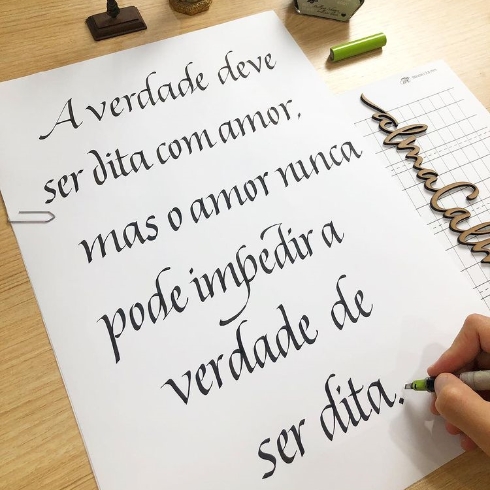 A verdade deve
ser dita com amor,
mas o amor nunca
pode impedir a
verdade de
ser dita.
alma